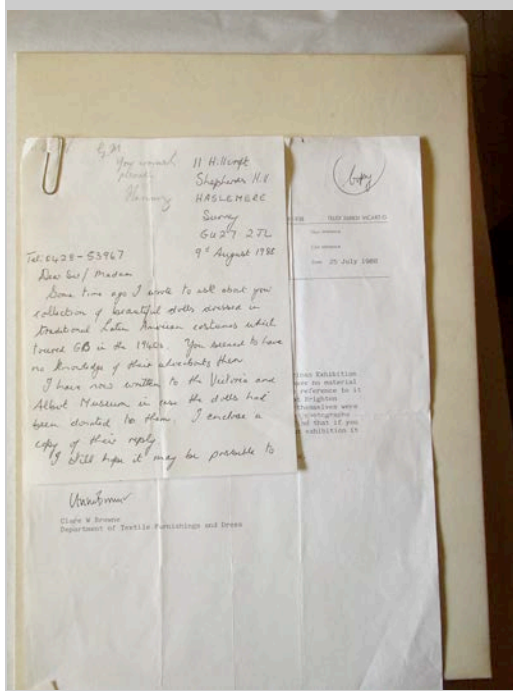 You
please
11 Hillcroft
Shepherds Hill
HASLEMERE
Surrey
GU27 2JL
Tel: 0428-53967
9th August 1988
Dear Sir/Madam
Some time ago I wrote to ask about your
collection of beautiful dolls dressed in
traditional Latin American costumes which
toured GB in the 1940s. You seemed to have
no knowledge of their whereabouts then
I have now written to the Victoria and
Albert Museum in case the dolls had
been donated to them. I enclose a
copy of their reply
I still hope it may be possible to
Copy
Date 25 July 1988
Exhibition
have no material
reference to it
Brighton
themselves were
photographs
so that if you
exhibition it
Clare W Browne
Department of Textile Furnishings and Dress